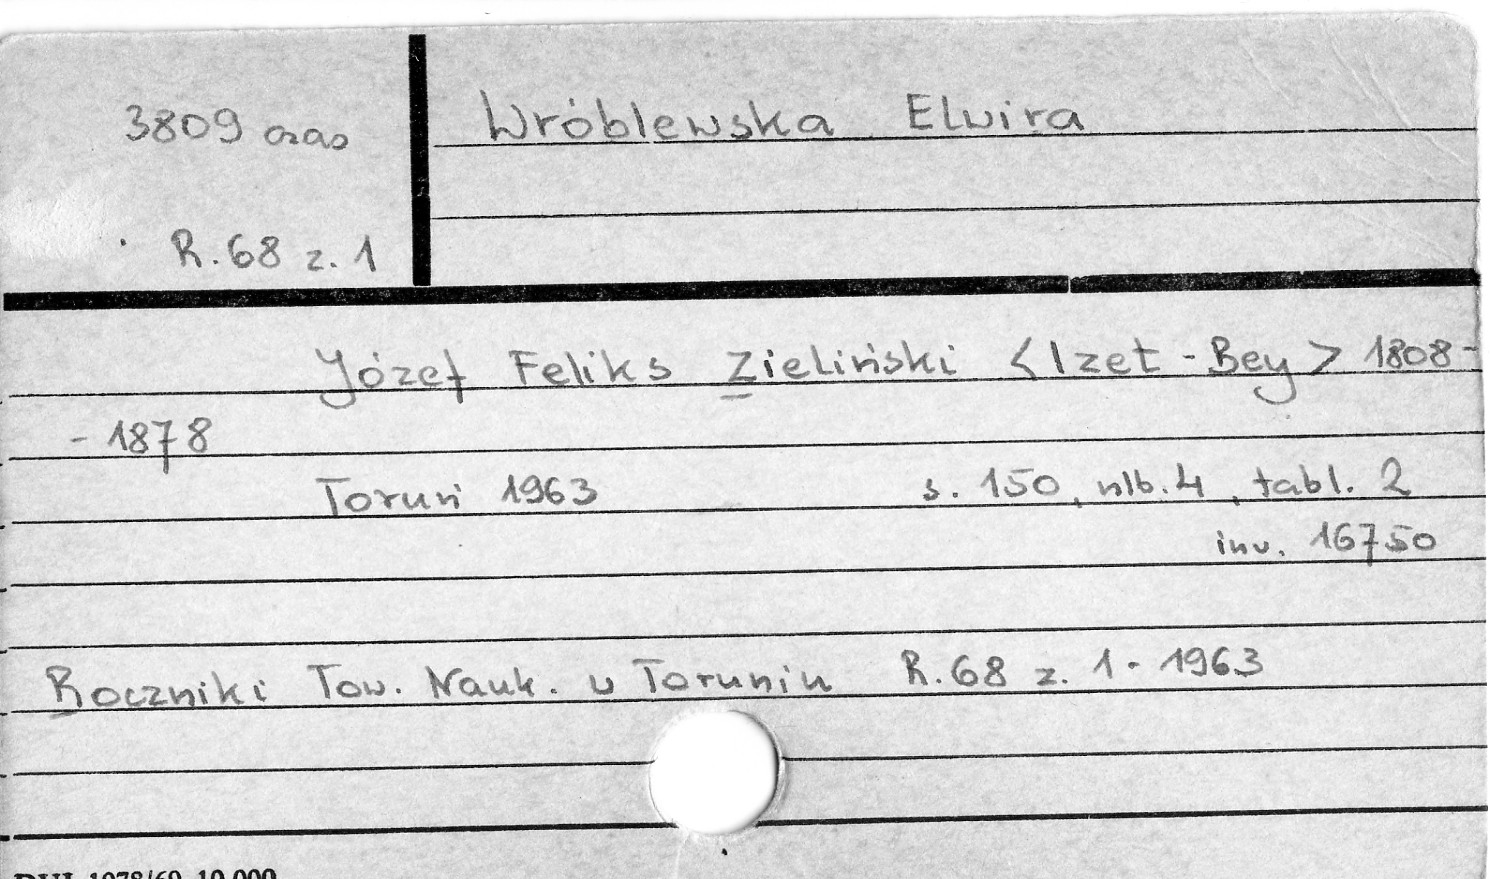 3809 czas
Wróblewska Elwira
R. 68 z. 1
Józef Feliks Zieliński <Izet-Bey> 1808-
- 1878
Toruń 1963 s. 150, nlb. 4, tabl. 2
inv. 16750
Roczniki Tow. Nauk. w Toruniu R. 68 z. 1 - 1963
10.000